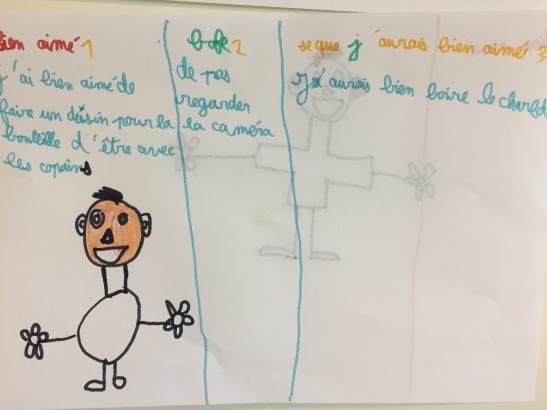 bien aimé 1
j'ai bien aimé de
faire un dessin pour la
bouteille d'être avec
les copains
bof 2
de pas
regarder
la caméra
se que j'aurais bien aimé 3
J'aurais bien boire le